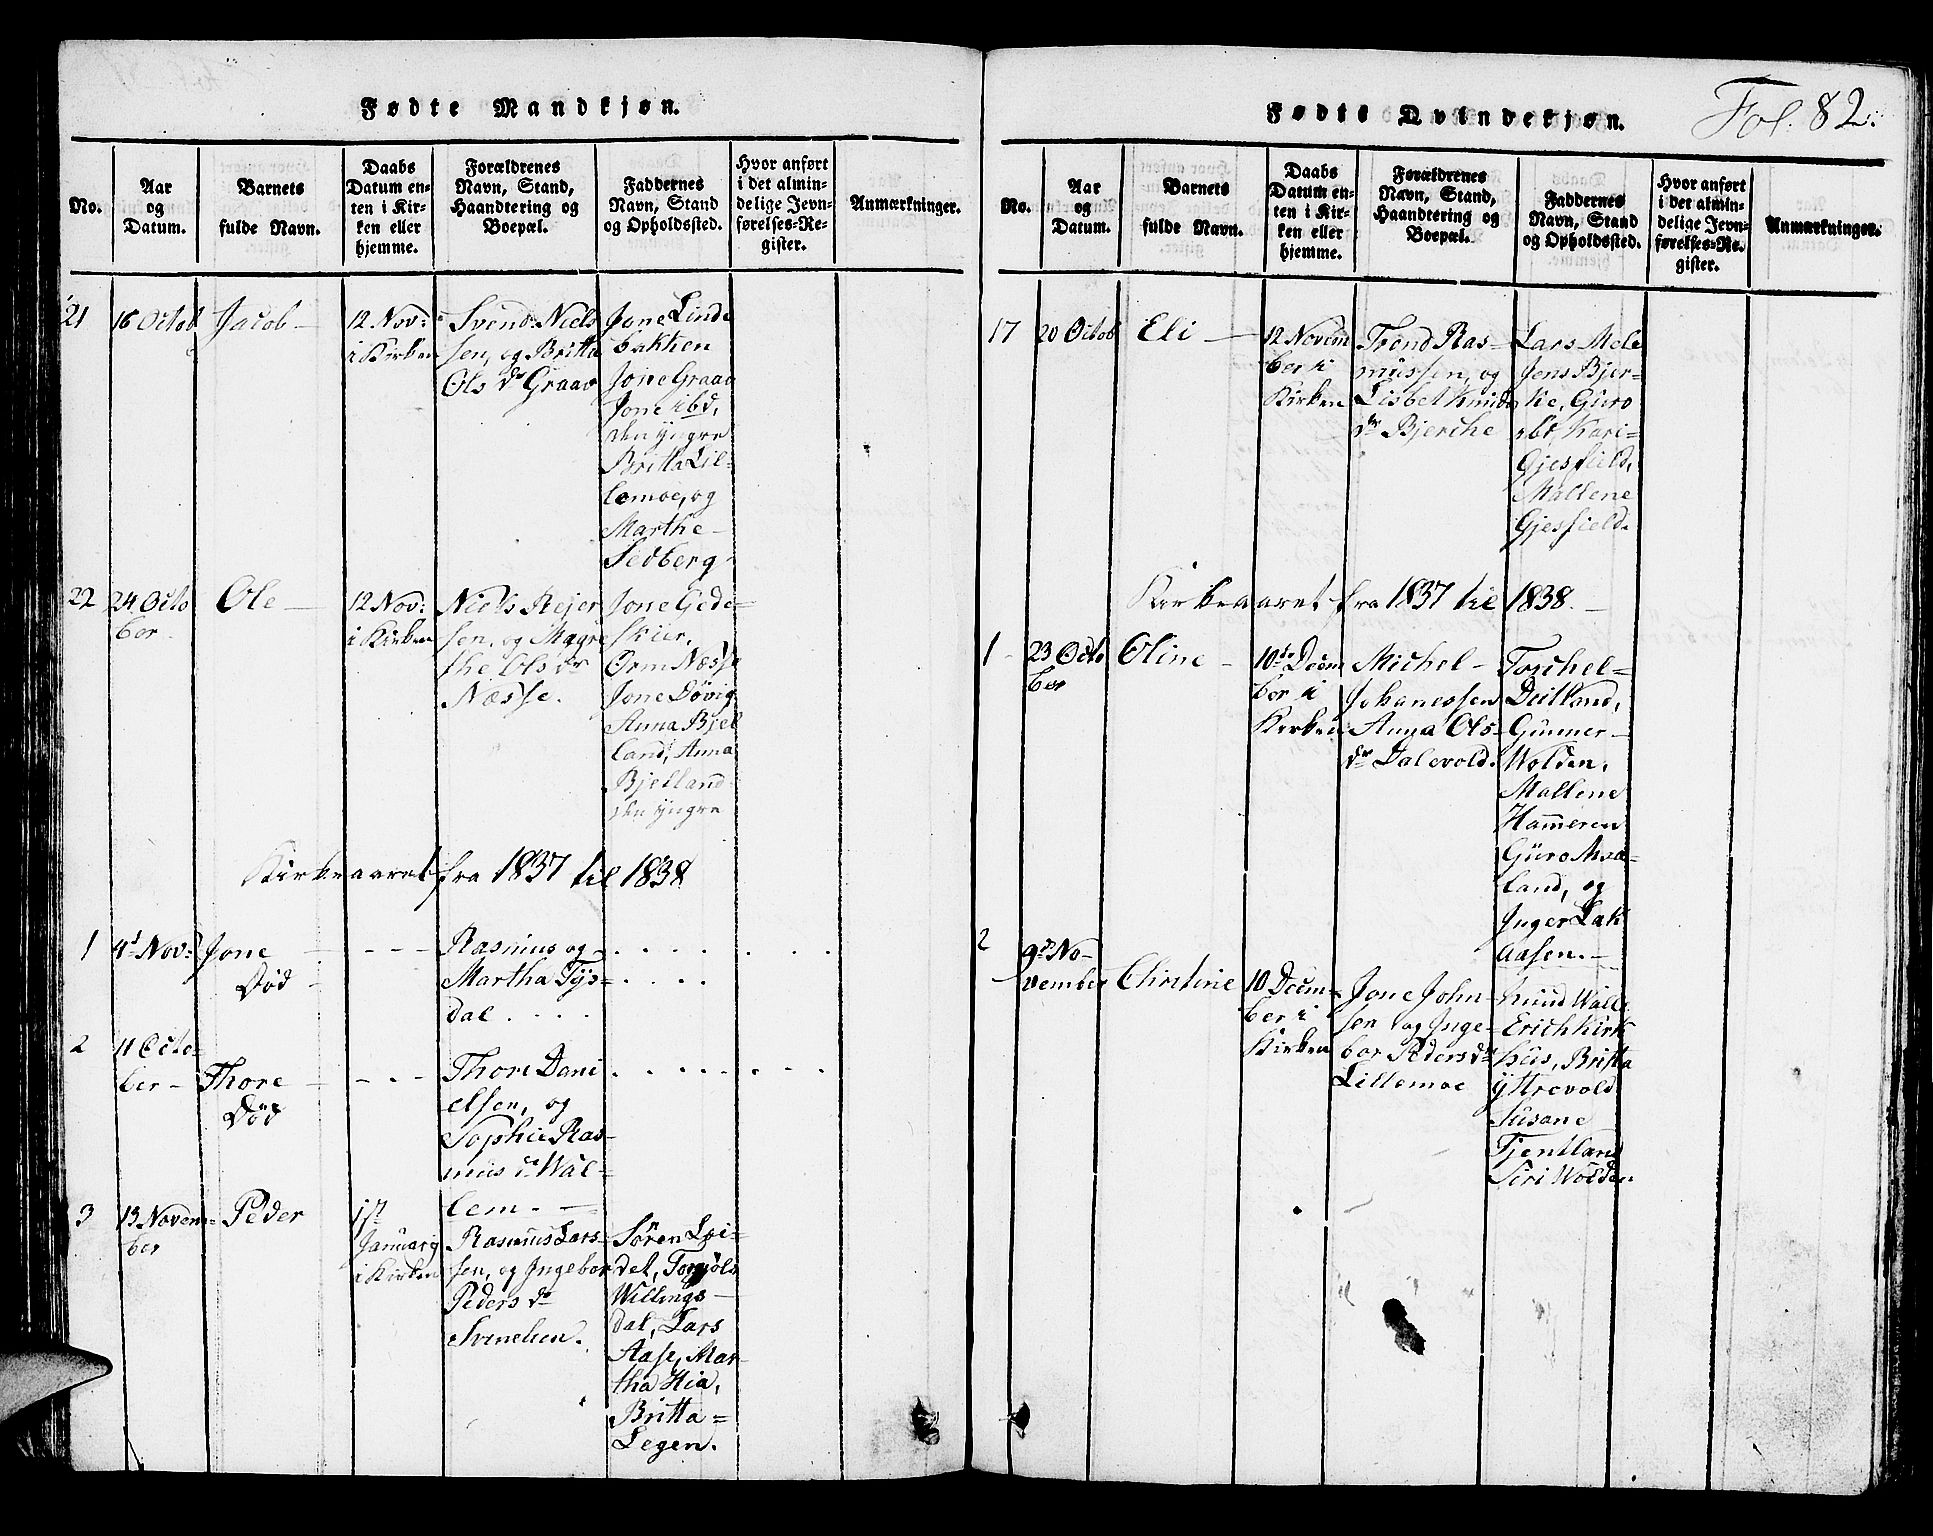 Fødte Mandkjøn.
No.
Aar
og
Datum.
Barnets
fulde Navn.
Daabs
Datum en-
ten i Kir-
ken eller
hjemme.
Forældrenes
Navn, Stand,
Haandtering og
Boepæl.
Faddernes
Navn, Stand
og Opholdssted.
Hvor anført
i det almin-
delige Jevn-
førelses-Re-
gister.
Anmærkninger.
21
16 Octob
Jacob
12 Nov:
i Kirken
Svend Niels
sen, og Britta
Ols dr Graav
Jone Linde
bakken
Jone Graav
Jone ibd,
den yngre
Britta Lil-
lemoe, og
Marthe
Sedberg
22
24 Octo
ber
Ole
12 Nov:
i Kirken
Niels Rejer
sen, og Magre
the Ols dr
Næsse.
Jone Gede-
skier,
Orm Næsse
Jone Døvig
Anna Bjel
land, Anna
Bjelland
den yngre
Kirkeaaret fra 1837 til 1838
1
4d Nov:
Jone
Død
Rasmus og
Martha Tys-
dal
2
11 Octo-
ber
Thore
Død
Thore Dani
elsen, og
Sophie Ras-
mus dr Wal-
lem.
3
13 Novem-
ber
Peder
1st
Januarÿ
i Kirken
Rasmus Lars-
sen, og Ingebor
Peders dr
Svinelien.
Sören Loi-
det, Tomjøls
Willings-
dal, Lars
Aase, Mar-
tha Hia,
Britta
Legen.
Fol. 82.
Fødte Qvindekjøn.
No.
Aar
og
Datum.
Barnets
fulde Navn.
Daabs
Datum en-
ten i Kir-
ken eller
hjemme.
Forældrenes
Navn, Stand,
Haandtering og
Boepæl.
Faddernes
Navn, Stand
og Opholdssted.
Hvor anført
i det almin-
delige Jevn-
førelses-Re-
gister.
Anmærkninger.
17
20 Octob
Eli
12 Novem
ber i
Kirken
Trond Ras-
mussen, og
Lisbet Knuds
dr Bjerche
Lars Mele
Jens Bjer-
ke, Guro
ibd, Kari
Gjesfield,
Mallene
Gjesfield.
Kirkeaaret fra 1837 til 1838.
1
23 Octo
ber
Oline
10de Decem
ber i
Kirken
Michel
Johanessen
Anna Ols-
dr Dalevold.
Torchel
Deitland,
Gunner
Wolden,
Mallene
Hameren
Guro Mæ-
land, og
Inger Lak
aasen.
2
9de No-
vember
Christine
10 Decem-
ber i
Kirken
Jone John-
sen og Inge-
bor Pedersdr
Lillemoe
Knud Walle
Erich Kirk
hus, Britta
Yttrevold
Susane
Tjentland
Siri Wolden